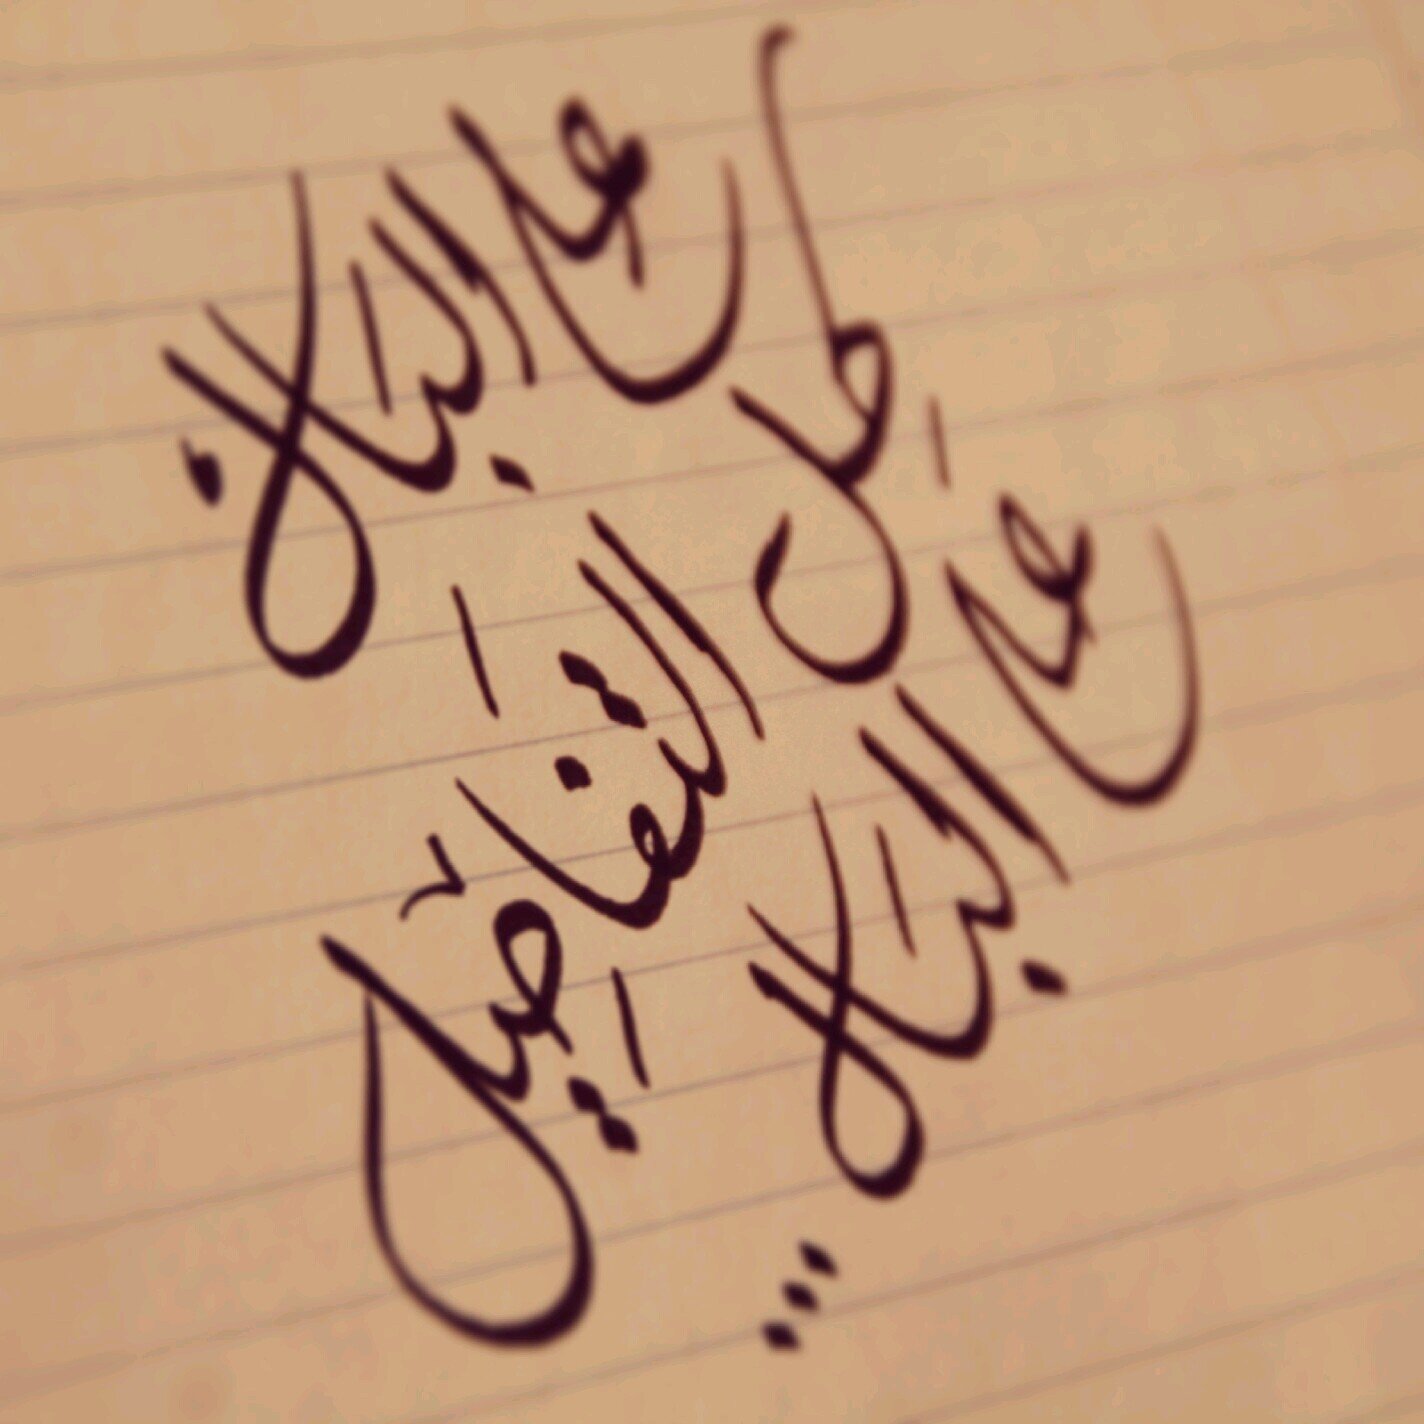 على البال،
كل التفاصيل
على البال ...